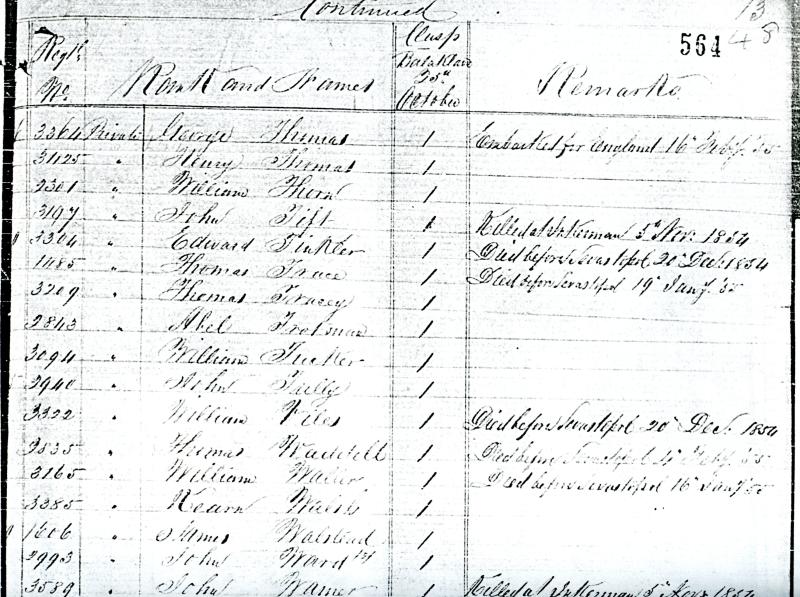 Continued
564
13
48
Regtl. No. Rank and Names Clasp Balaklava 25th October Remarks
3364 Private George Thomas 1 Embarked for England 16" Feby. 55
3425 " Henry Thomas 1
2301 " William Thorn 1
3197 " John Tift 1 Killed at Inkerman 5th Nov. 1854
3304 " Edward Tinkler 1 Died before Sevastopol 20" Dec. 1854
1485 " Thomas Trace 1 Died before Sevastopol 19" Jany. 55
3209 " Thomas Tracey 1
2843 " Abel Trotman 1
3094 " William Tucker 1
3940 " John Tully 1
3322 " William Viles 1 Died before Sevastopol 20" Dec. 1854
3535 " Thomas Waddell 1 Died before Sevastopol 4" Feby. 55
3165 " William 1 Died before Sevastopol 16" Jany 55
3385 " Kearn Walsh 1
1606 " James Walstead 1
2993 " John Ward 1st 1
3589 " John Warner 1 Killed at Inkerman 5" Nov. 1854